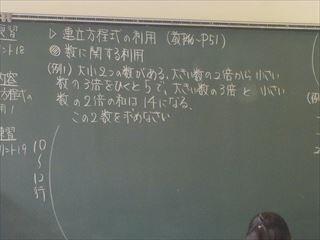 ▷ 連立方程式の利用 (教科P51)
◎ 数に関する利用
(例1) 大小2つの数がある。大きい数の2倍から小さい
数の3倍をひくと5で、大きい数の3倍と小さい
数の2倍の和は14になる。
この2数を求めなさい
練習
リント18
内容
方程式の
用1
練習
リント19
10
〜
12
行